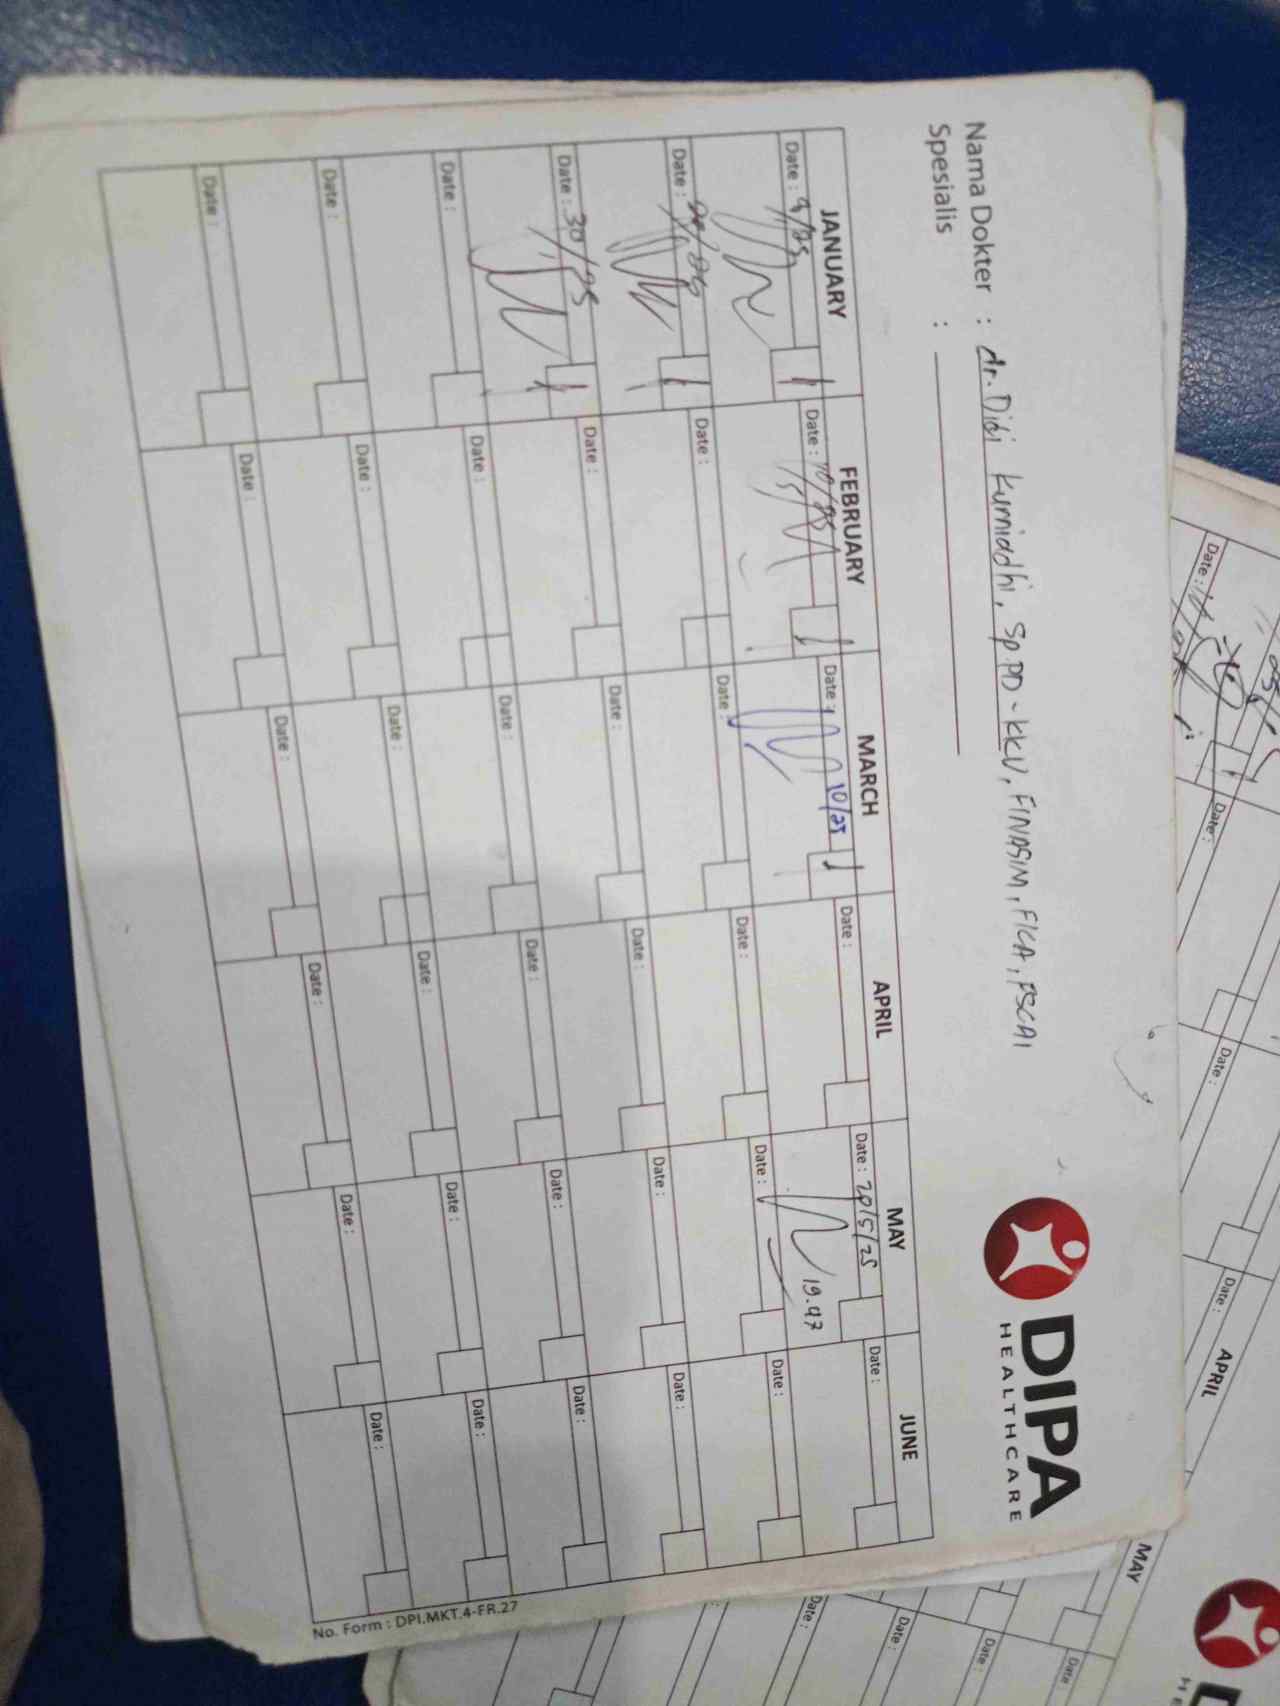 Nama Dokter : dr. Didi Kurniadhi, Sp.PD - KKV, FINASIM, FICA, FSCAI
Spesialis :
DIPA
HEALTHCARE
JANUARY FEBRUARY MARCH APRIL MAY JUNE
Date : 9/25 1 Date : 10/25 1 Date : 10/25 1 Date : Date : 20/5/25 Date :
19.47
Date : 1 Date : Date : Date : Date : Date :
Date : 30/25 1 Date : Date : Date : Date : Date :
Date : Date : Date : Date : Date : Date :
Date : Date : Date : Date : Date : Date :
Date : Date : Date : Date : Date : Date :
No. Form : DPI.MKT.4-FR.27
APRIL MAY
Date : Date : Date :
Date : Date :
Date : Date : Date : Date :